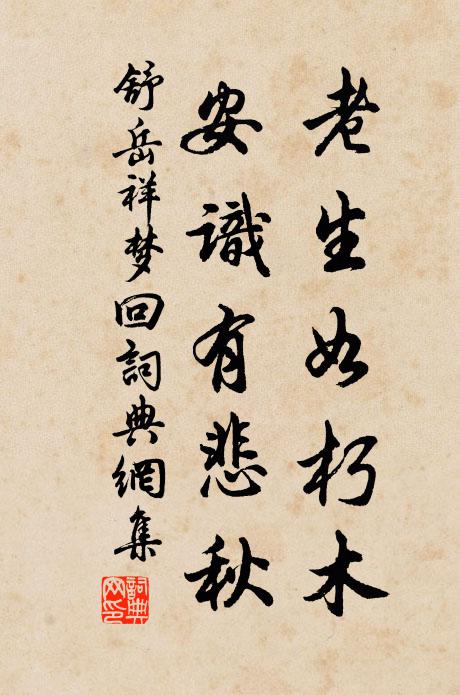 老生如朽木
安識有悲秋
舒岳祥梦回詞典網集
詞典网印